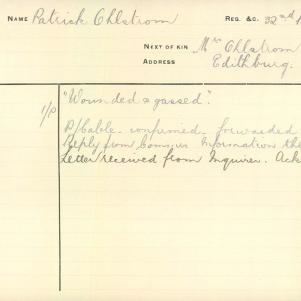 NAME Patrick Ohlstrom REG. &C. 32nd
NEXT OF KIN Mrs Ohlstrom
ADDRESS Edithburg.
1/P "Wounded & gassed".
P/Cable confirmed. forwarded
Reply from Information the
Letter received from Inquirer. Ack